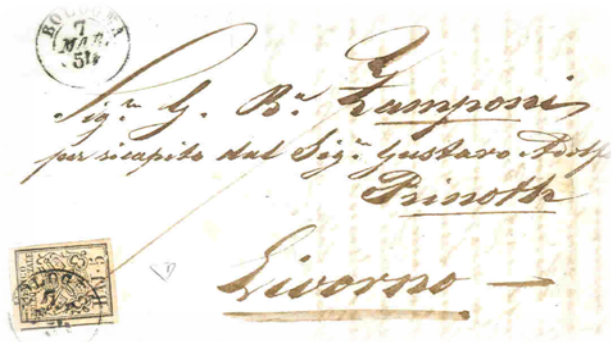 BOLOGNA
7
MAR.
54
Sig.r G. B.a Zamponi
per ricapito dal Sig.r Gustavo Adolf
Prinoth
Livorno
BAJ. 5
BOLOGNA
7